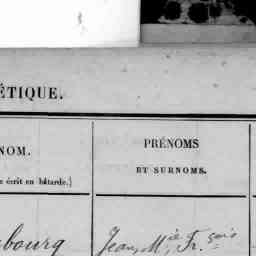 ÉTIQUE.
NOM.
PRÉNOMS
ET SURNOMS.
e écrit en bâtarde.)
bourg
Jean, M.ie, Fr.çois